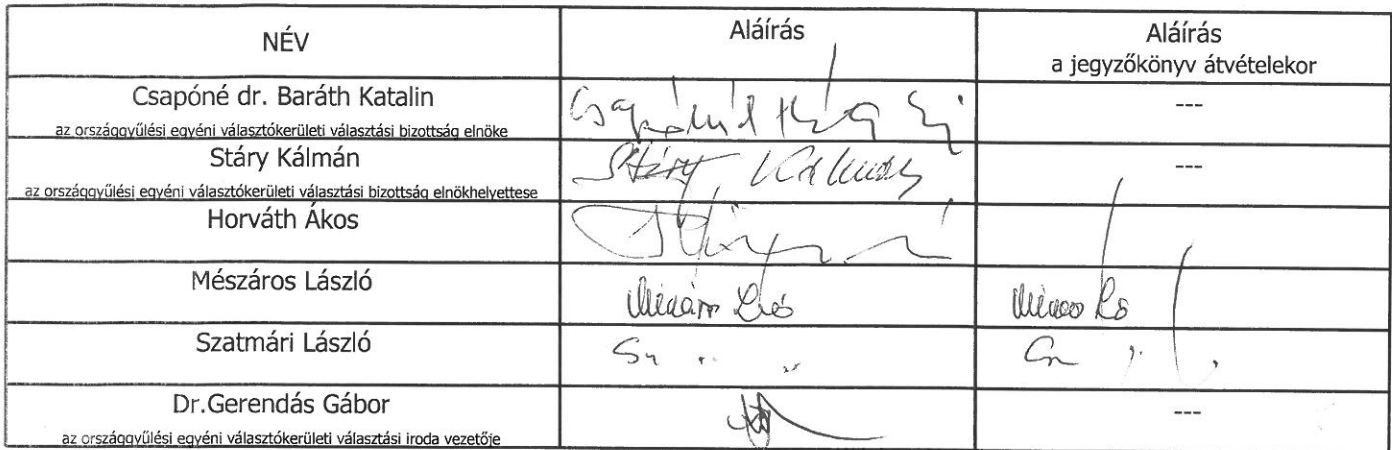 NÉV
Aláírás
Aláírás
a jegyzőkönyv átvételekor
Csapóné dr. Baráth Katalin
az országgyűlési egyéni választókerületi választási bizottság elnöke
---
Stáry Kálmán
az országgyűlési egyéni választókerületi választási bizottság elnökhelyettese
Stáry Kálmán
---
Horváth Ákos
Mészáros László
Szatmári László
Dr.Gerendás Gábor
az országgyűlési egyéni választókerületi választási iroda vezetője
---